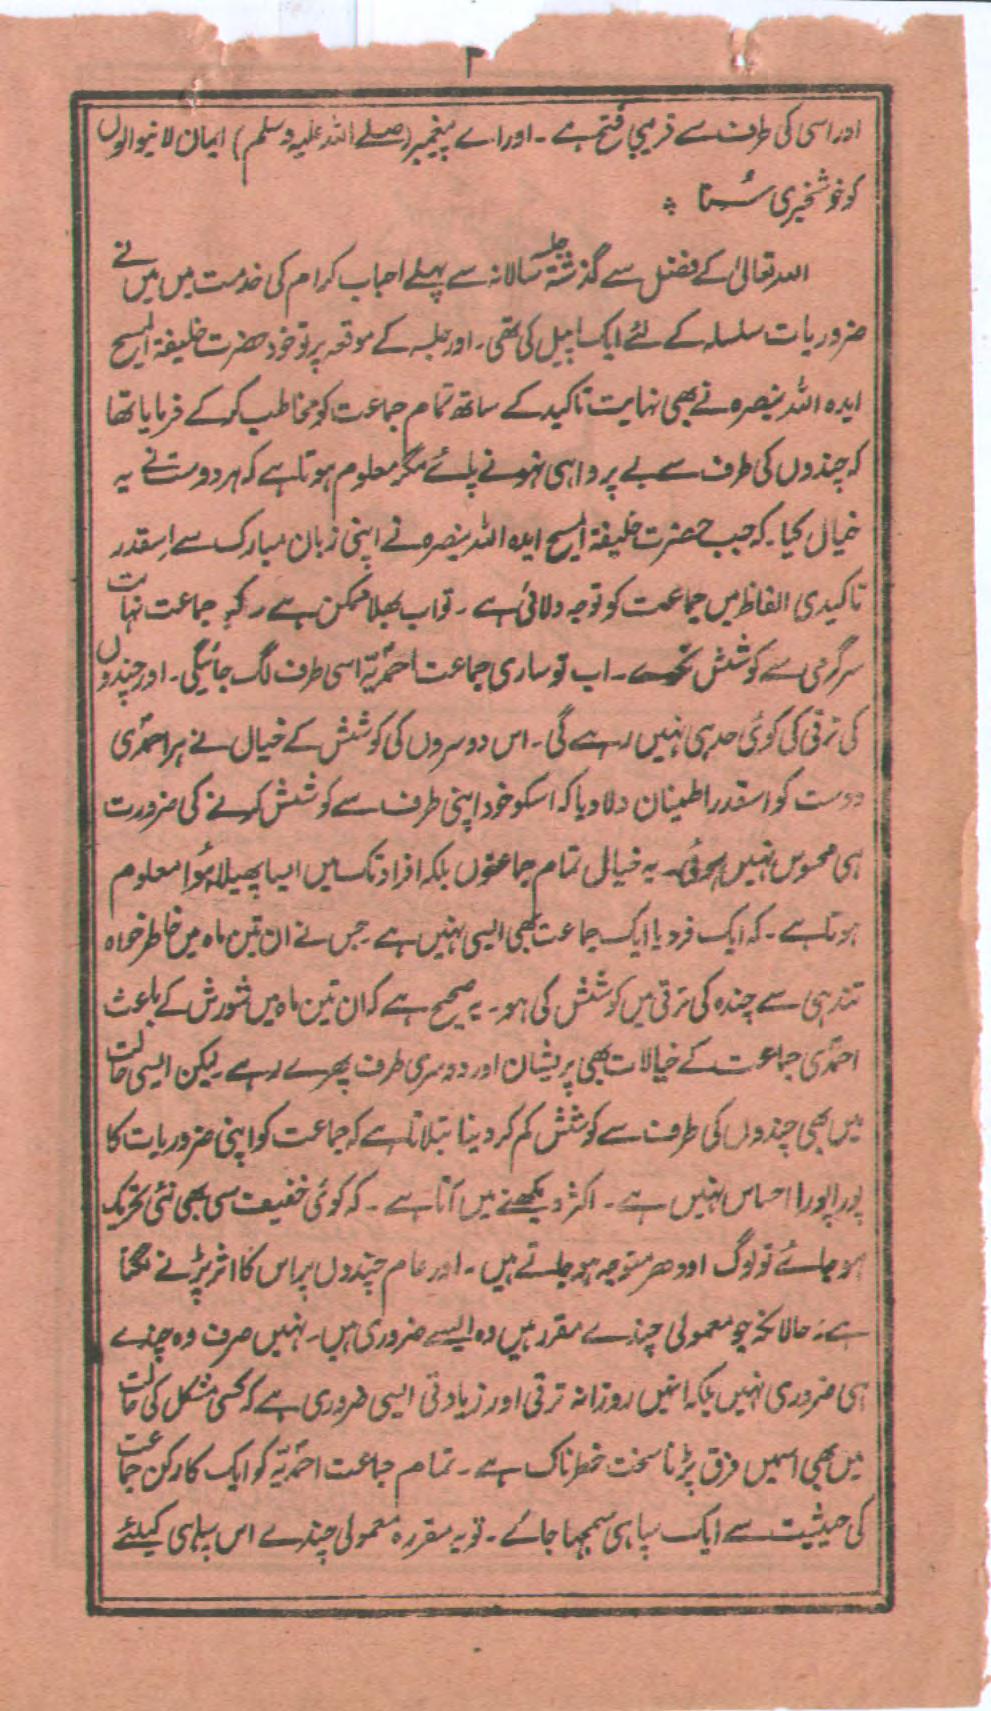 ۲
اور اسی کی طرف سے قریبی فتح ہے ۔ اور اے پیغمبر (صلے اللہ علیہ وسلم) ایمان لانیوالوں
کو خوشخبری سُنا ۞
اللہ تعالیٰ کے فضل سے گذشتہ جلسہ سالانہ سے پہلے احباب کرام کی خدمت میں میں نے
ضروریات سلسلہ کے لئے ایک اپیل کی تھی ۔ اور جلسہ کے موقعہ پر تو خود حضرت خلیفۃ المسیح
ایدہ اللہ بنصرہ نے بھی نہایت تاکید کے ساتھ تمام جماعت کو مخاطب کر کے فرمایا تھا
کہ چندوں کی طرف سے بے پرواہی نہونے پائے مگر معلوم ہوتا ہے کہ ہر دوست نے یہ
خیال کیا ۔ کہ جب حضرت خلیفۃ المسیح ایدہ اللہ بنصرہ نے اپنی زبان مبارک سے اسقدر
تاکیدی الفاظ میں جماعت کو توجہ دلائی ہے ۔ تو اب بھلا ممکن ہے ۔ کہ جماعت نہایت
سرگرمی سے کوشش نکرے ۔ اب تو ساری جماعت احمدیّہ اسی طرف لگ جائیگی ۔ اور چندوں
کی ترقی کی کوئی حد ہی نہیں رہے گی ۔ اس دوسروں کی کوشش کے خیال نے ہر احمدؐی
دوست کو اسقدر اطمینان دلا دیا کہ اسکو خود اپنی طرف سے کوشش کرنے کی ضرورت
ہی محسوس نہیں ہوئی ۔ یہ خیال تمام جماعتوں بلکہ افراد تک میں ایسا پھیلا ہؤا معلوم
ہوتا ہے ۔ کہ ایک فرد یا ایک جماعت بھی ایسی نہیں ہے ۔ جس نے ان تین ماہ میں خاطر خواہ
تندہی سے چندہ کی ترقی میں کوشش کی ہو ۔ یہ صحیح ہے کہ ان تین ماہ میں شورش کے باعث
احمدؐی جماعت کے خیالات بھی پریشان اور دوسری طرف پھرے رہے ۔ لیکن ایسی حالت
میں بھی چندوں کی طرف سے کوشش کم کر دینا بتلاتا ہے کہ جماعت کو اپنی ضروریات کا
پورا پورا احساس نہیں ہے ۔ اکثر دیکھنے میں آتا ہے ۔ کہ کوئی خفیف سی بھی نئی تحریک
ہو جائے تو لوگ اودھر متوجہ ہو جاتے ہیں ۔ اور عام چندوں پر اس کا اثر پڑنے لگتا
ہے ۔ حالانکہ جو معمولی چندے مقرر ہیں وہ ایسے ضروری ہیں ۔ نہیں صرف وہ چندے
ہی ضروری نہیں بلکہ انہیں روزانہ ترقی اور زیادتی ایسی ضروری ہے کہ کسی مشکل کی حالت
میں بھی اسمیں فرق پڑنا سخت خطرناک ہے ۔ تمام جماعت احمدیّہ کو ایک کارکن جماعت
کی حیثیت سے ایک سپاہی سمجہا جائے ۔ تو یہ مقررہ معمولی چندے اس سپاہی کیلئے